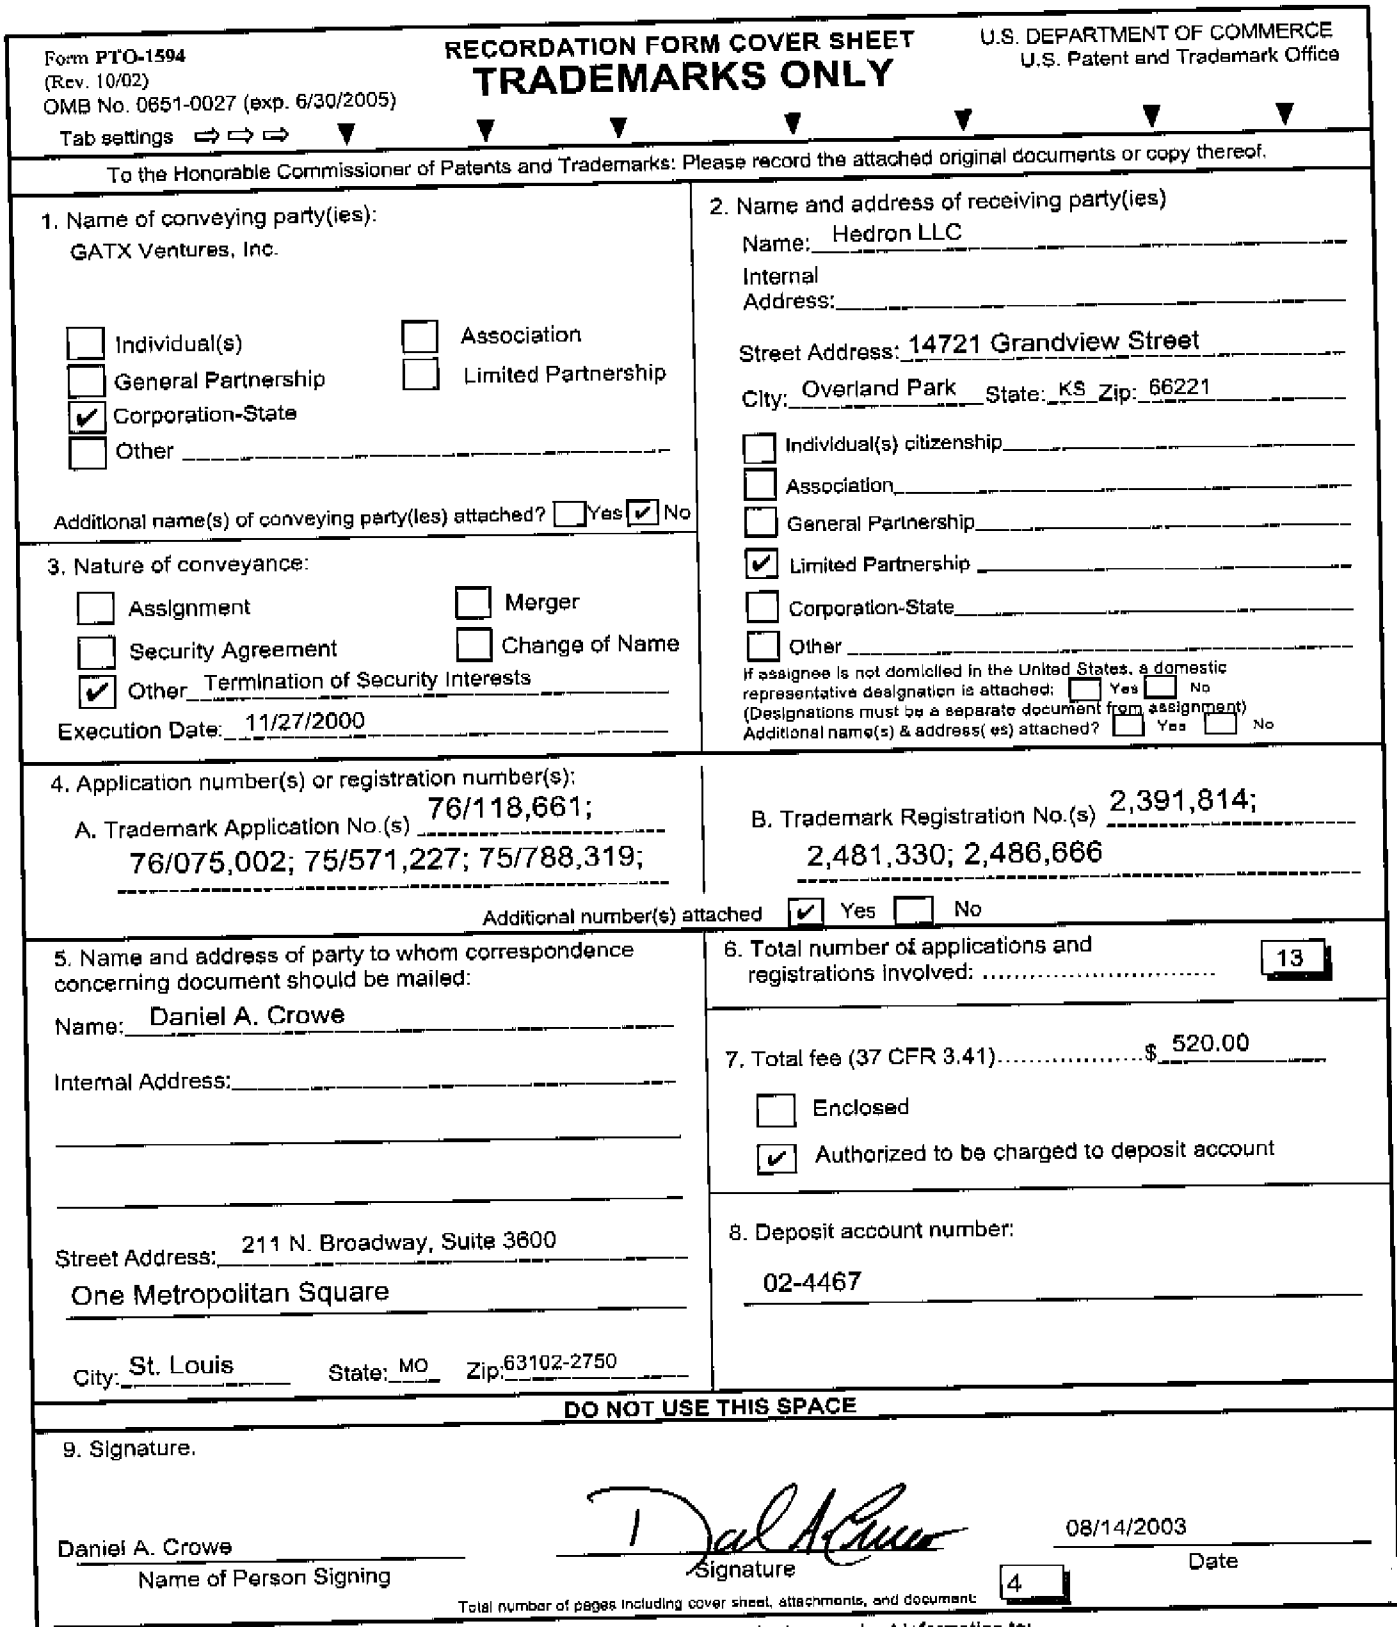 Form PTO-1594
(Rev. 10/02)
OMB No. 0651-0027 (exp. 6/30/2005)
Tab settings
RECORDATION FORM COVER SHEET
TRADEMARKS ONLY
U.S. DEPARTMENT OF COMMERCE
U.S. Patent and Trademark Office
To the Honorable Commissioner of Patents and Trademarks: Please record the attached original documents or copy thereof.
1. Name of conveying party(ies):
GATX Ventures, Inc.
Individual(s) Association
General Partnership Limited Partnership
Corporation-State
Other
Additional name(s) of conveying party(ies) attached? Yes No
2. Name and address of receiving party(ies)
Name: Hedron LLC
Internal
Address:
Street Address: 14721 Grandview Street
City: Overland Park State: KS Zip: 66221
Individual(s) citizenship
Association
General Partnership
Limited Partnership
Corporation-State
Other
If assignee is not domiciled in the United States, a domestic
representative designation is attached: Yes No
(Designations must be a separate document from assignment)
Additional name(s) & address( es) attached? Yes No
3. Nature of conveyance:
Assignment Merger
Security Agreement Change of Name
Other Termination of Security Interests
Execution Date: 11/27/2000
4. Application number(s) or registration number(s):
A. Trademark Application No.(s) 76/118,661;
76/075,002; 75/571,227; 75/788,319;
B. Trademark Registration No.(s) 2,391,814;
2,481,330; 2,486,666
Additional number(s) attached Yes No
5. Name and address of party to whom correspondence
concerning document should be mailed:
Name: Daniel A. Crowe
Internal Address:
Street Address: 211 N. Broadway, Suite 3600
One Metropolitan Square
City: St. Louis State: MO Zip: 63102-2750
6. Total number of applications and
registrations involved: 13
7. Total fee (37 CFR 3.41) $ 520.00
Enclosed
Authorized to be charged to deposit account
8. Deposit account number:
02-4467
DO NOT USE THIS SPACE
9. Signature.
Daniel A. Crowe
Name of Person Signing
Signature
08/14/2003
Date
Total number of pages including cover sheet, attachments, and document: 4